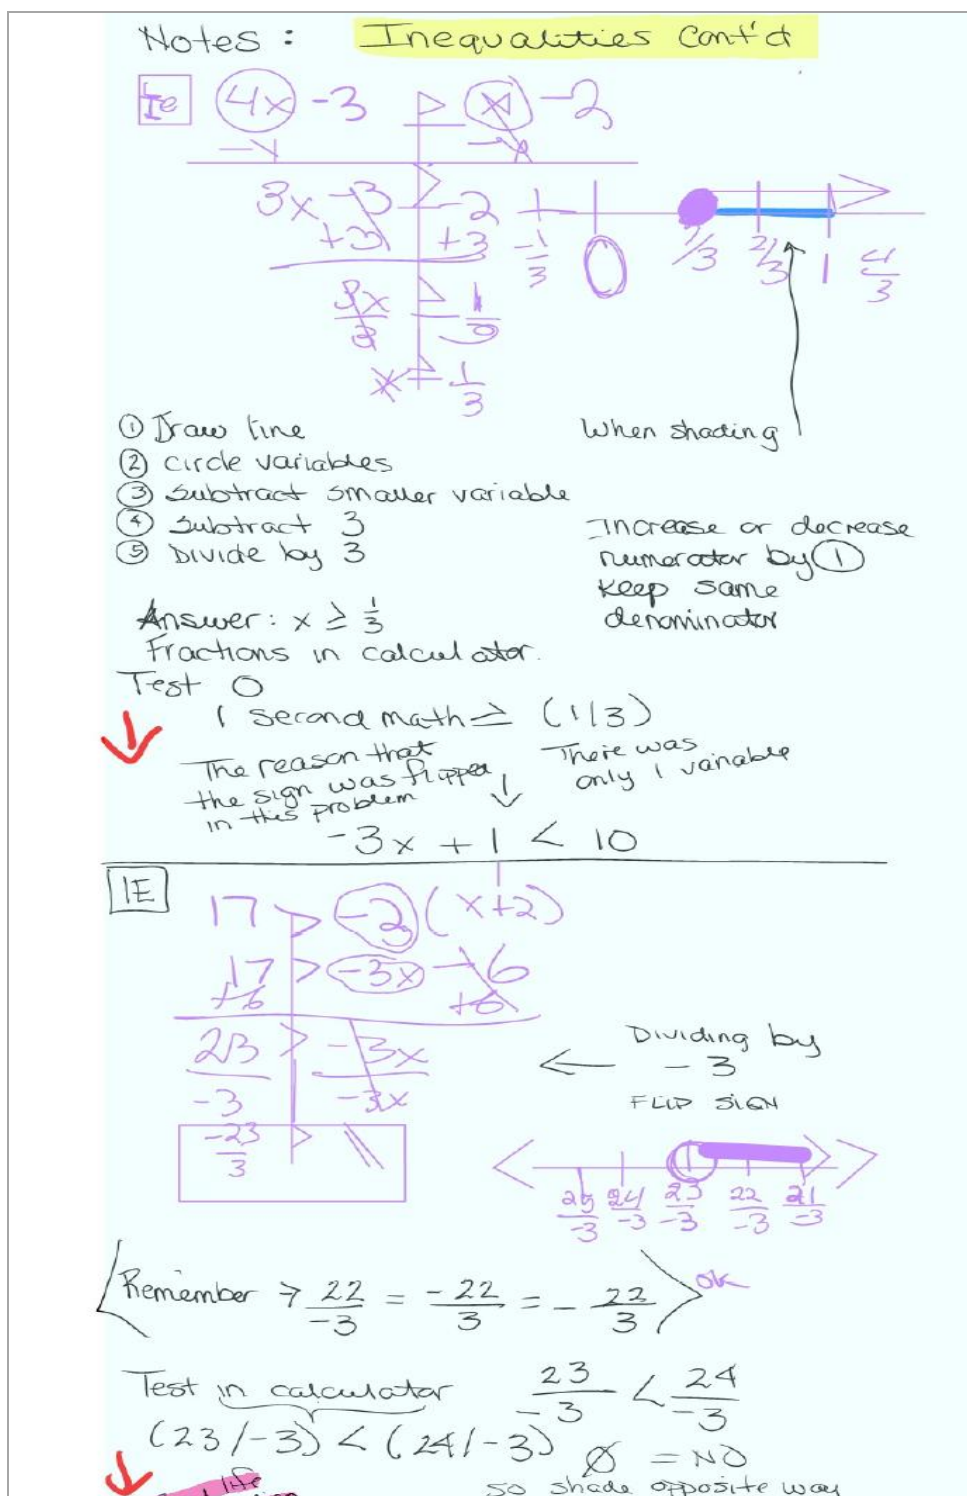 Notes: Inequalities Cont'd
Ie 4x -3 ≥ x -2
3x -3 ≥ -2
+3 +3
3x ≥ 1
3
x ≥ 1/3
-1/3 0 1/3 2/3 1 4/3
① Draw line
② circle variables
③ subtract smaller variable
④ subtract 3
⑤ Divide by 3
When shading
Increase or decrease
numerator by ①
keep same
denominator
Answer: x ≥ 1/3
Fractions in calculator.
Test 0
1 second math ≥ (1/3)
The reason that
the sign was flipped
in this problem
There was
only 1 variable
-3x + 1 < 10
IE
17 > -3 (x+2)
17 > -3x -6
+6 +6
23 > -3x
-3 -3x
-23/3
Dividing by
-3
FLIP SIGN
25/-3 24/-3 23/-3 22/-3 21/-3
Remember → 22/-3 = -22/3 = - 22/3 ok
Test in calculator 23/-3 < 24/-3
(23/-3) < (24/-3) Ø = NO
so shade opposite way
life